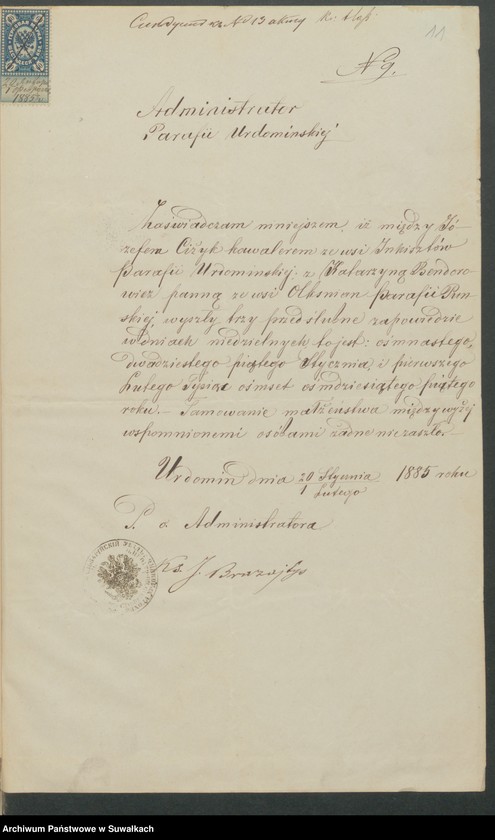 11
N 9.
Administrator
Parafii Urdominskiéj
Zaświadczam niniejszem, iż między Jó-
zefem Ciżyk kawalerem ze wsi Inkisztów
Parafii Urdominskiej; z Katarzyną Bendoro-
wicz panną ze wsi Olksman Parafii Rem-
skiej wyszły trzy przedślubne zapowiedzie
w dniach niedzielnych to jest: ośmnastego,
dwudziestego piątego Stycznia, i pierwszego
Lutego Tysiąc ośmset ośmdziesiątego piątego
roku. — Tamowanie małżeństwa między wyżej
wspomnionemi osobami żadne nie zaszło. —
Urdomin dnia 20 Stycznia / 1 Lutego 1885 roku
P. o Administratora
Ks. J.
Archiwum Państwowe w Suwałkach